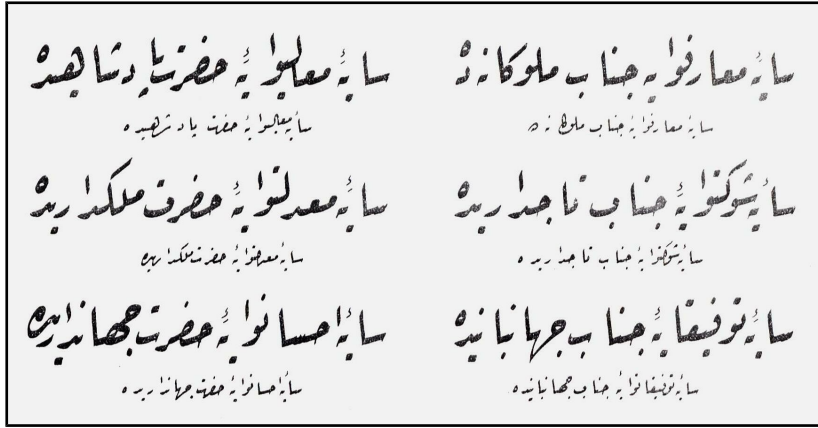 سایهٔ معارفوایه جناب ملوکانه‌ده
سایهٔ معارفوایهٔ جناب ملوکانه‌ده
سایهٔ شوکتوایهٔ جناب تاجداریده
سایهٔ شوکتوایهٔ جناب تاجداریده
سایهٔ توفیقایهٔ جناب جهانبانیده
سایهٔ توفیقاتوایهٔ جناب جهانبانیده
سایهٔ معالیوایهٔ حضرت پادشاهیده
سایهٔ معالیوایهٔ حضرت پادشاهیده
سایهٔ معدلتوایهٔ حضرت ملکداریده
سایهٔ معدلتوایهٔ حضرت ملکداریده
سایهٔ احسانوایهٔ حضرت جهانداریده
سایهٔ احسانوایهٔ حضرت جهانداریده